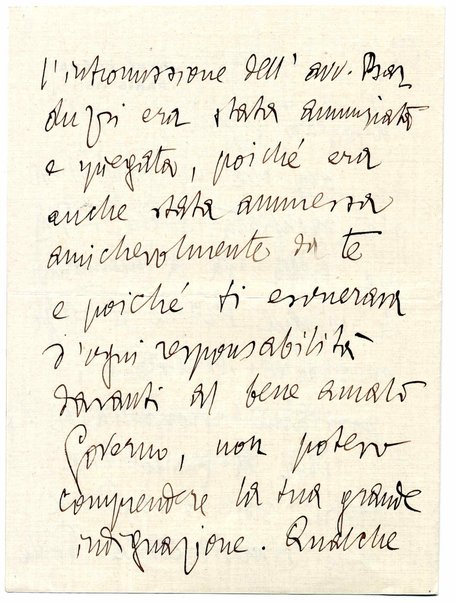 l'intromissione dell' avv. Bar
duzzi era stata annunziata
e spiegata, poiché era
anche stata ammessa
amichevolmente da te
e poiché ti esonerava
d'ogni responsabilità
davanti al bene amato
Governo, non potevo
comprendere la tua grande
indignazione. Qualche